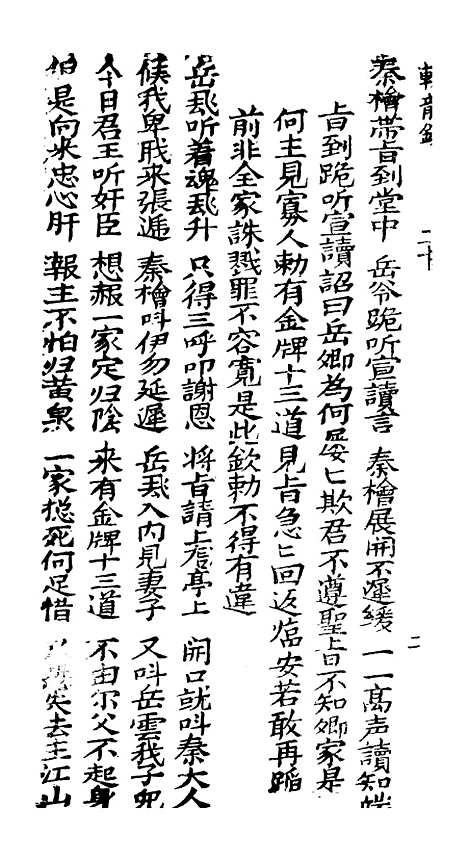 斬龍鋸 二十 二
秦檜帶旨到堂中 岳令跪听宣讀言 秦檜展開不遲緩 一一高声讀知端
旨到跪听宣讀詔曰岳卿為何屡匕欺君不遵聖旨不知卿家是
何主見寡人勅有金牌十三道見旨急匕回返临安若敢再蹈
前非全家誅戮罪不容寛是此欽勅不得有違
岳飛听着魂飛升 只得三呼叩謝恩 将旨請上亭上 開口就叫秦大人
候我卑戝来張遞 秦檜叫伊勿延遲 岳飛入内見妻子 又叫岳雲我子兒
今日君王听奸臣 想赧一家定归陰 来有金牌十三道 不由尔父不起身
怕是向来忠心肝 報主不怕归黄泉 一家捴死何足惜 失去主江山